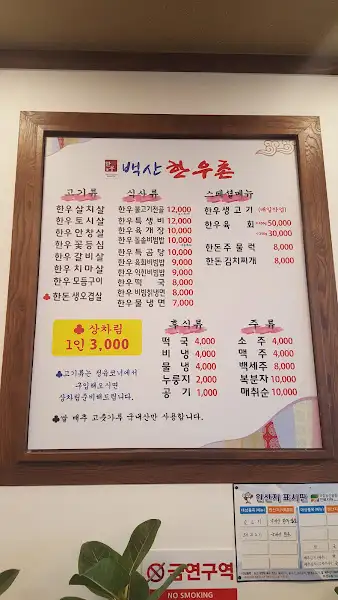 백산 한우촌
고기류
한우살치살
한우토시살
한우안창살
한우꽃등심
한우갈비살
한우치마살
한우모듬구이
한돈생오겹살
식사류
한우불고기전골 12,000
한우특생비 12,000
한우육개장 10,000
한우돌솥비빔밥 10,000
한우특곰탕 10,000
한우육회비빔밥 9,000
한우익힌비빔밥 9,000
한우떡국 8,000
한우비빔칡냉면 8,000
한우물냉면 7,000
스페셜메뉴
한우생고기
한우육회 50,000
30,000
한돈주물럭 8,000
한돈김치찌개 8,000
상차림
1인 3,000
고기류는 정육코너에서
구입해오시면
상차림준비해드립니다.
후식류
떡국 4,000
비냉 4,000
물냉 4,000
누룽지 2,000
공기 1,000
주류
소주 4,000
맥주 4,000
백세주 8,000
복분자 10,000
매취순 10,000
쌀 배추 고춧가루 국내산만 사용합니다.
원산지 표시판
금연구역
NO SMOKING